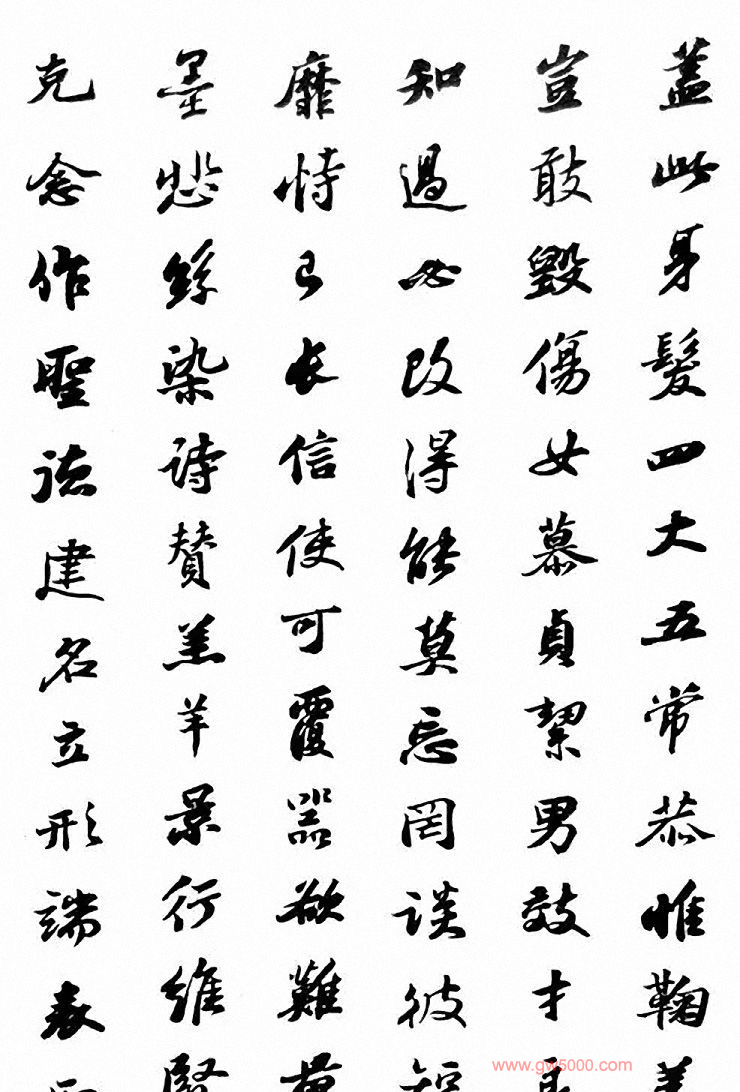 蓋此身髮四大五常恭惟鞠養
豈敢毀傷女慕貞絜男效才良
知過必改得能莫忘罔談彼短
靡恃已長信使可覆器欲難量
墨悲絲染詩賛羔羊景行維賢
克念作聖德建名立形端表
www.gw5000.com